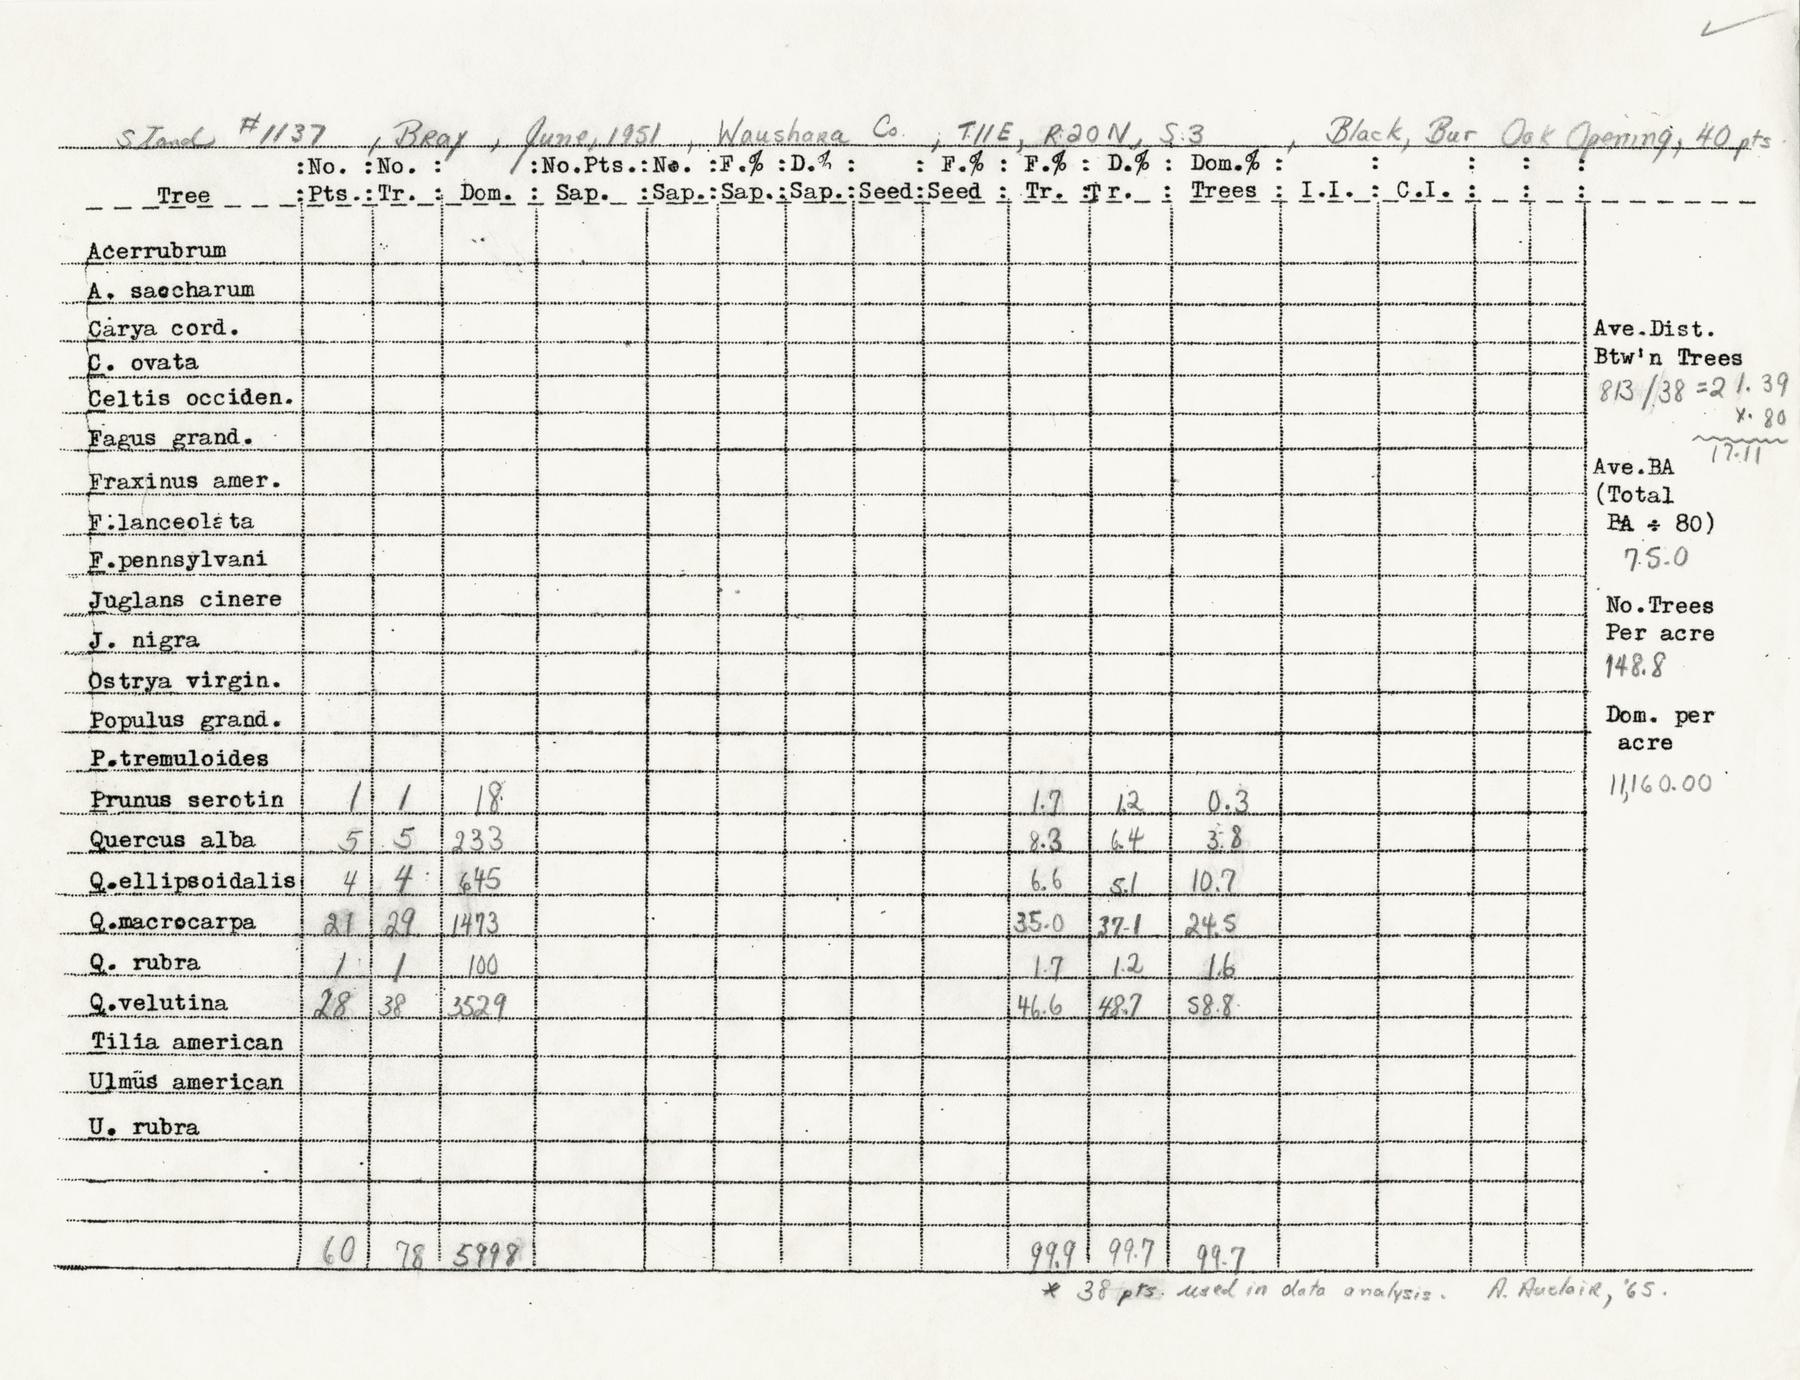 Stand #1137, Bray, June, 1951, Waushara Co., T.11E, R.20N, S.3, Black, Bur Oak Opening, 40 pts.
:No. :No. : :No.Pts.:No. :F.% :D.% : : F.% : F.% : D.% : Dom.% : : : : :
Tree :Pts.:Tr. : Dom. : Sap. :Sap.:Sap.:Sap.:Seed:Seed : Tr. :Tr. : Trees : I.I. : C.I. : : :
Acerrubrum
A. saccharum
Carya cord.
C. ovata
Celtis occiden.
Fagus grand.
Fraxinus amer.
F.lanceolata
F.pennsylvani
Juglans cinere
J. nigra
Ostrya virgin.
Populus grand.
P.tremuloides
Prunus serotin 1 1 18 1.7 1.2 0.3
Quercus alba 5 5 233 8.3 6.4 3.8
Q.ellipsoidalis 4 4 645 6.6 5.1 10.7
Q.macrocarpa 21 29 1473 35.0 37.1 24.5
Q. rubra 1 1 100 1.7 1.2 1.6
Q.velutina 28 38 3529 46.6 48.7 58.8
Tilia american
Ulmus american
U. rubra
60 78 5998 99.9 99.7 99.7
* 38 pts. used in data analysis. A. Auclair, '65.
Ave.Dist.
Btw'n Trees
813/38 =21.39
x.80
17.11
Ave.BA
(Total
BA ÷ 80)
75.0
No.Trees
Per acre
148.8
Dom. per
acre
11,160.00